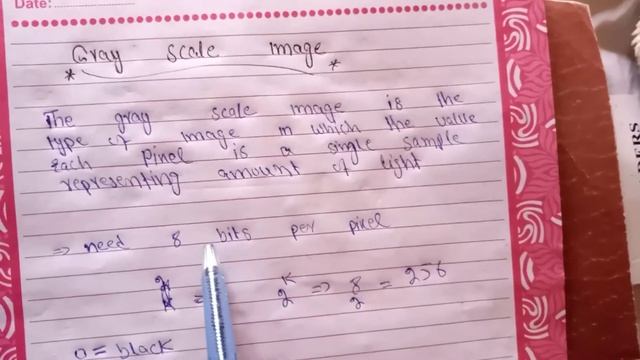 Date:
Gray scale image
* *
The gray scale image is the
type of image in which the value
each pixel is a single sample
representing amount of light
⇒ need 8 bits per pixel
= 2^k ⇒ 2^8 = 256
0 = black